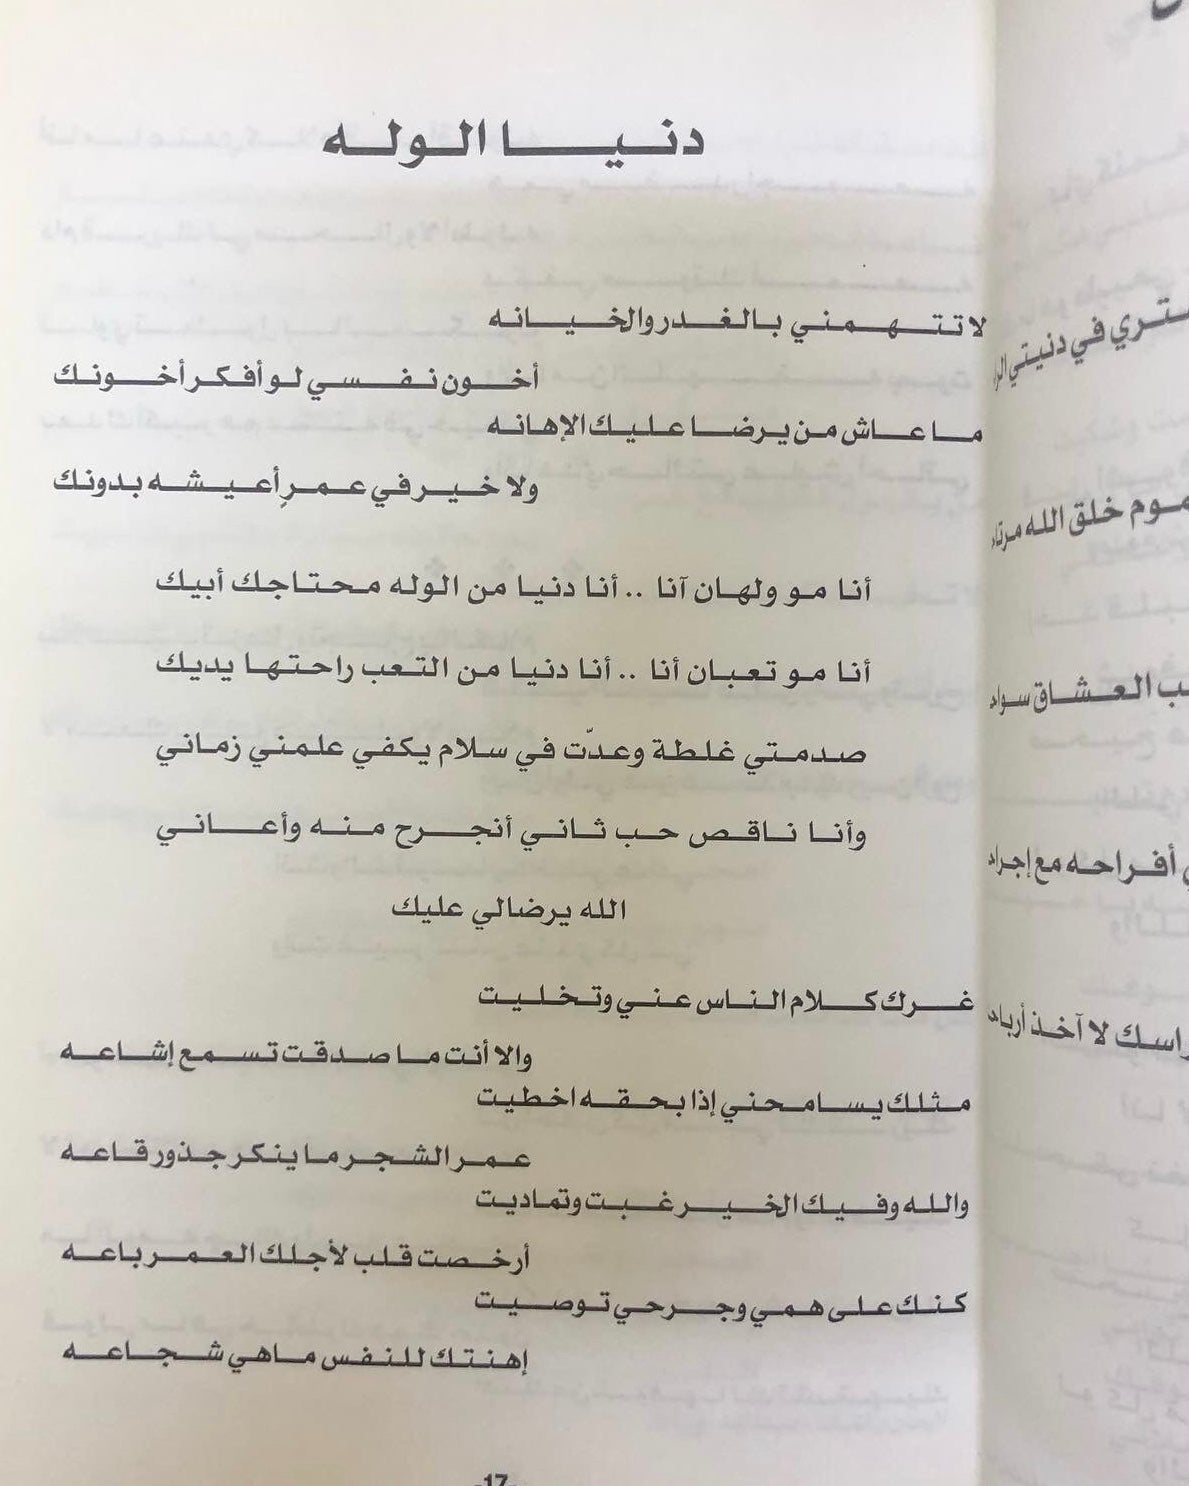 دنيا الوله
لا تتهمني بالغدر والخيانه
أخون نفسي لو أفكر أخونك
ما عاش من يرضا عليك الإهانه
ولا خير في عمرٍ أعيشه بدونك
أنا مو ولهان آنا .. أنا دنيا من الوله محتاجك أبيك
أنا مو تعبان أنا .. أنا دنيا من التعب راحتها يديك
صدمتي غلطة وعدّت في سلام يكفي علمني زماني
وأنا ناقص حب ثاني أنجرح منه وأعاني
الله يرضالي عليك
غرك كلام الناس عني وتخليت
والا أنت ما صدقت تسمع إشاعه
مثلك يسامحني إذا بحقه اخطيت
عمر الشجر ما ينكر جذور قاعه
والله وفيك الخير غبت وتماديت
أرخصت قلب لأجلك العمر باعه
كنك على همي وجرحي توصيت
إهنتك للنفس ماهي شجاعه
-17-
ستري في دنيتي
موم خلق الله
ب العشاق سواد
أفراحه مع
راسك لا آخذ